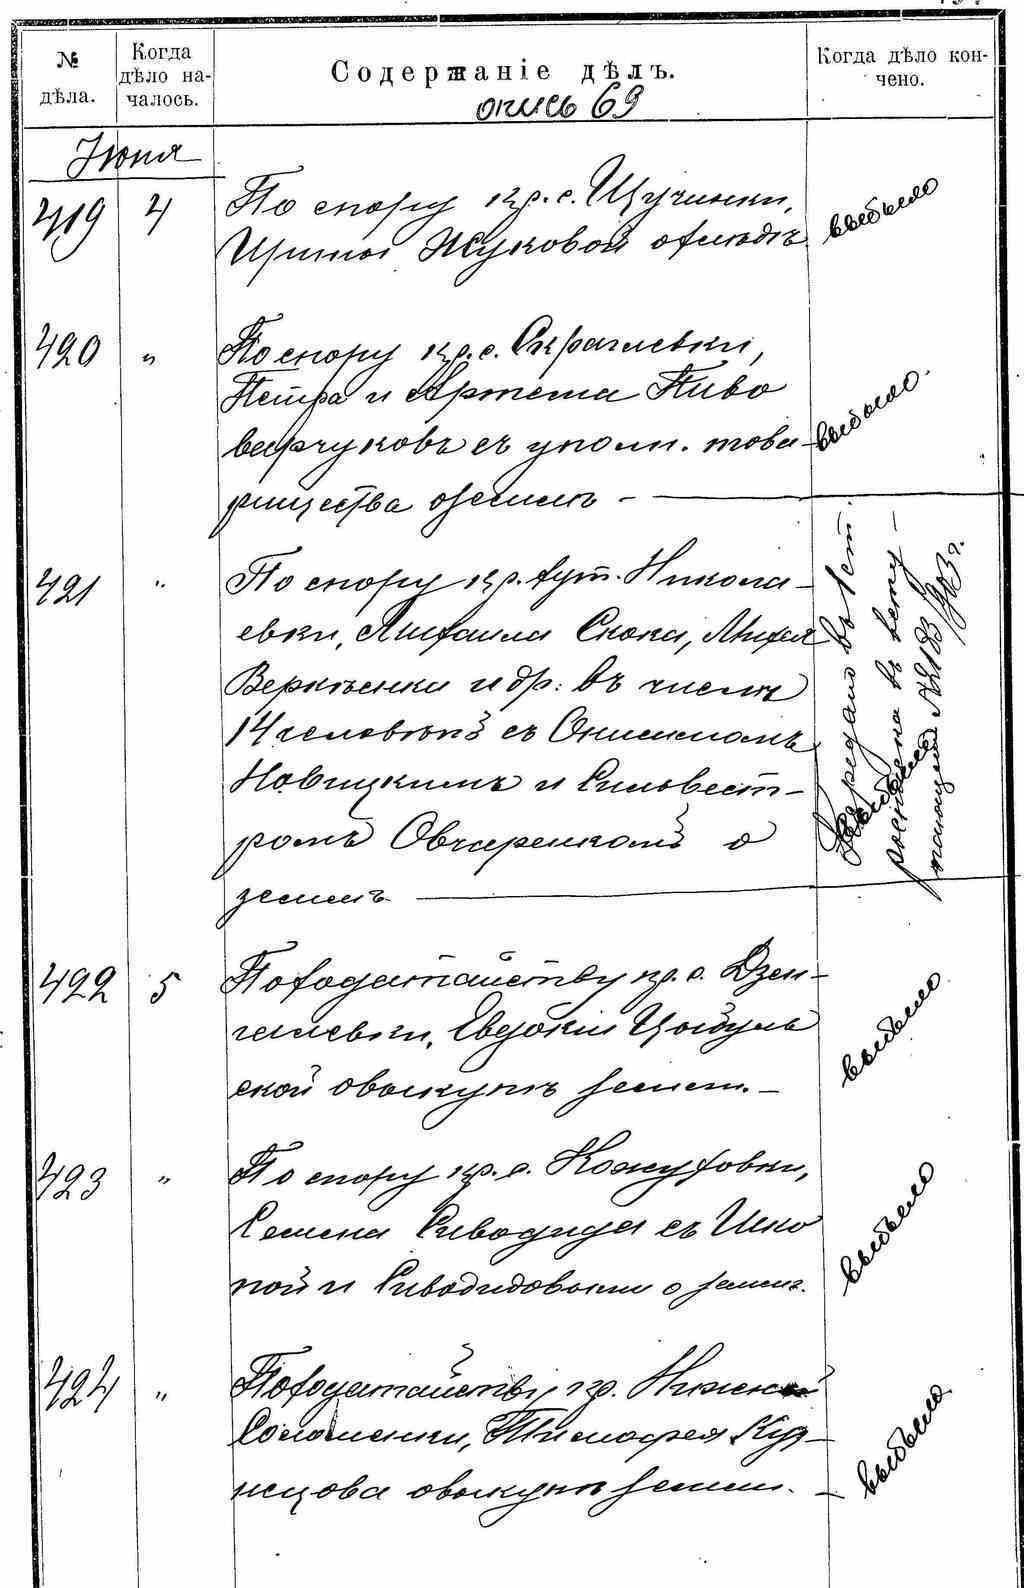 № дѣла.
Когда дѣло началось.
Содержаніе дѣлъ.
Когда дѣло кончено.
опись 69
Іюня
419 4 По спору кр. с. Щучинки, выбыло
Ирины Жуковой о землѣ
420 " По спору кр. с. Скраглевки,
Петра и Артема Пиво
варчуковъ съ упол. това- выбыло.
рищества о землѣ -
421 " По спору кр. хут. Никола-
евки, Михаила Скока,
и др: въ числѣ
14 человѣкъ съ Онисимомъ
Новицкимъ и Сильвест-
ромъ Овчаренкомъ о
землѣ
Передано въ 1 ст.
выбыло
№ 183/903 г.
422 5 По ходатайству кр. с. Дзен-
гелевки, Евдокіи Цыбуль
ской о выкупѣ земли. - выбыло.
423 " По спору кр. с. Кожуховки,
Семена Сиводида съ
и Сиводидовыми о землѣ. выбыло
424 " По ходатайству кр. Нижней
Соломенки, Тимофея Куз-
нецова о выкупѣ земли. - выбыло